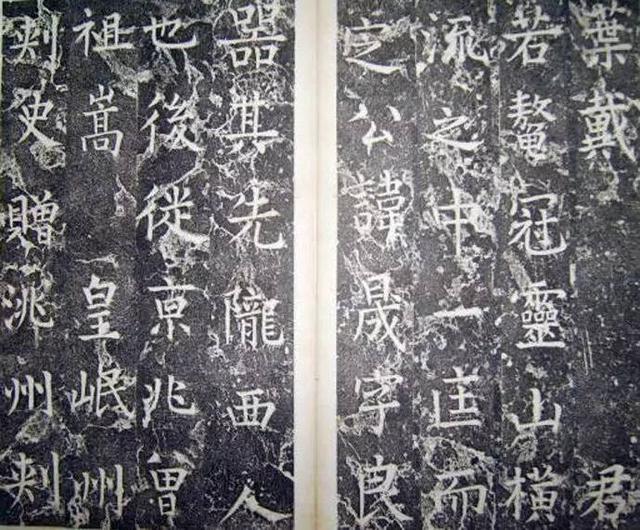 葉戴 君
若鼇冠靈山橫
流之中一匡而
定公諱晟字良
器其先隴西人
也後徙京兆曾
祖嵩 皇岷州
刺史贈洮州刺